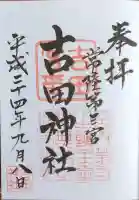 奉拝
常陸第三宮
吉田神社
平成二十四年九月八日